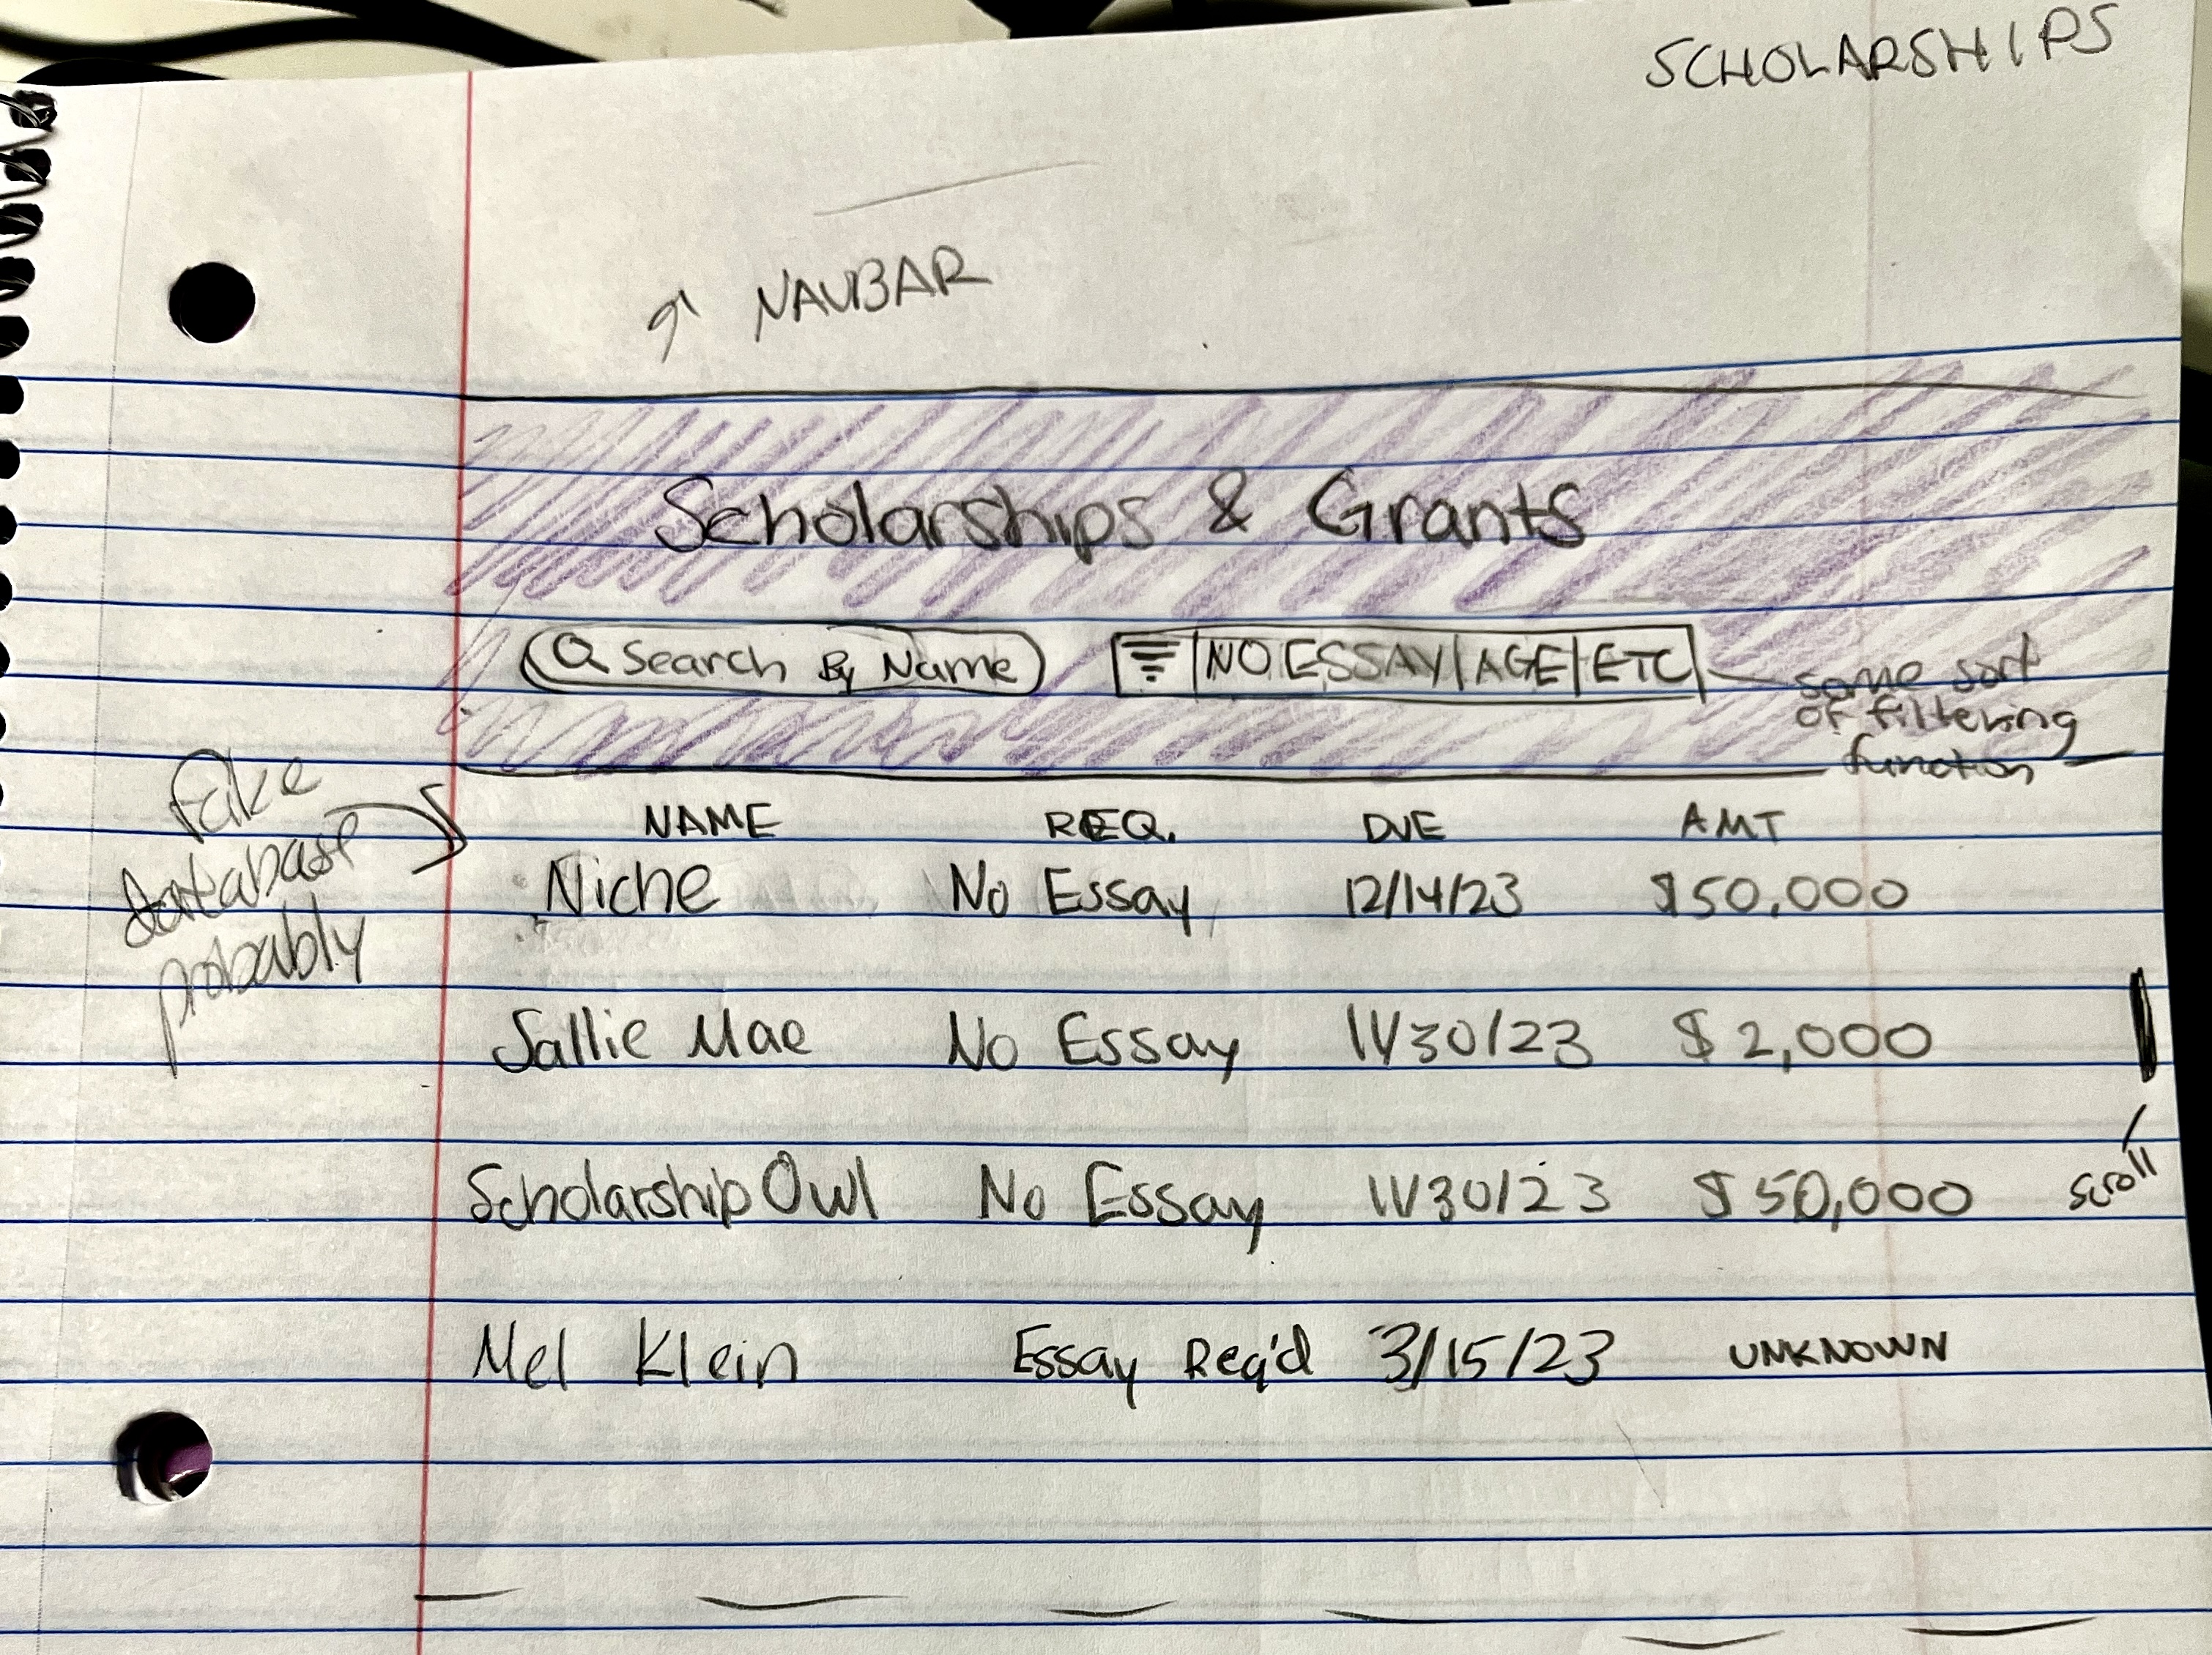 SCHOLARSHIPS
NAVBAR
Scholarships & Grants
Search By Name
NO ESSAY | AGE | ETC
some sort
of filtering
function
fake
database
probably
NAME REQ. DUE AMT
Niche No Essay 12/14/23 $50,000
Sallie Mae No Essay 11/30/23 $2,000
ScholarshipOwl No Essay 11/30/23 $50,000
scroll
Mel Klein Essay Req'd 3/15/23 UNKNOWN